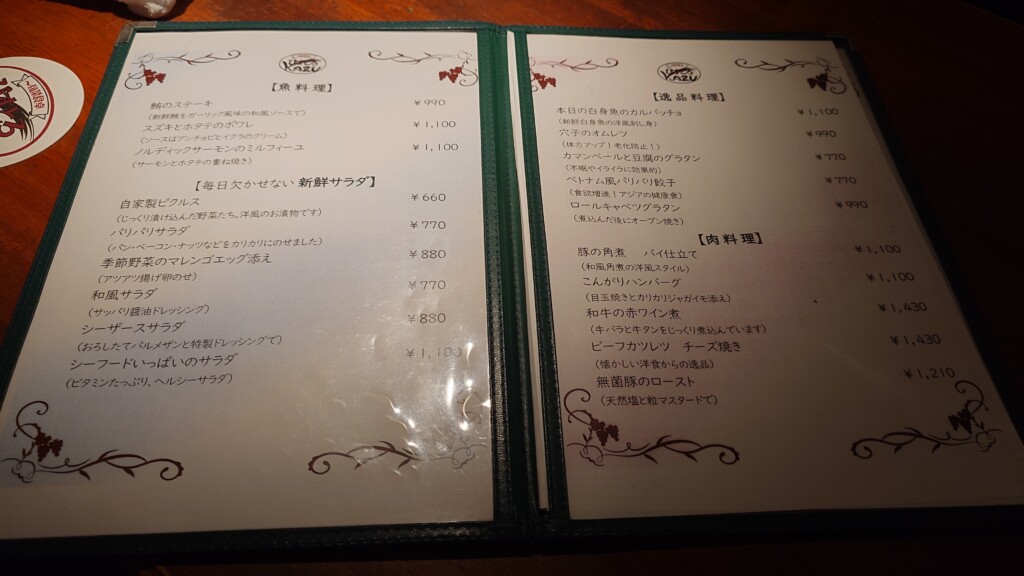 KAZU
【魚料理】
鮪のステーキ ¥990
(新鮮鮪をガーリック風味の和風ソースで)
スズキとホタテのポワレ ¥1,100
(ソースはアンチョビとイクラのクリーム)
ノルディックサーモンのミルフィーユ ¥1,100
(サーモンとホタテの重ね焼き)
【毎日欠かせない 新鮮サラダ】
自家製ピクルス ¥660
(じっくり漬け込んだ野菜たち。洋風のお漬物です)
パリパリサラダ ¥770
(パン・ベーコン・ナッツなどをカリカリにのせました)
季節野菜のマレンゴエッグ添え ¥880
(アツアツ揚げ卵のせ)
和風サラダ ¥770
(サッパリ醤油ドレッシング)
シーザースサラダ ¥880
(おろしたてパルメザンと特製ドレッシングで)
シーフードいっぱいのサラダ ¥1,100
(ビタミンたっぷり、ヘルシーサラダ)
KAZU
【逸品料理】
本日の白身魚のカルパッチョ ¥1,100
(新鮮白身魚の洋風刺し身)
穴子のオムレツ ¥990
(体力アップ!老化防止!)
カマンベールと豆腐のグラタン ¥770
(不眠やイライラに効果的)
ベトナム風パリパリ餃子 ¥770
(食欲増進!アジアの健康食)
ロールキャベツグラタン ¥990
(煮込んだ後にオーブン焼き)
【肉料理】
豚の角煮 パイ仕立て ¥1,100
(和風角煮の洋風スタイル)
こんがりハンバーグ ¥1,100
(目玉焼きとカリカリジャガイモ添え)
和牛の赤ワイン煮 ¥1,430
(牛バラと牛タンをじっくり煮込んでいます)
ビーフカツレツ チーズ焼き ¥1,430
(懐かしい洋食からの逸品)
無菌豚のロースト ¥1,210
(天然塩と粒マスタードで)